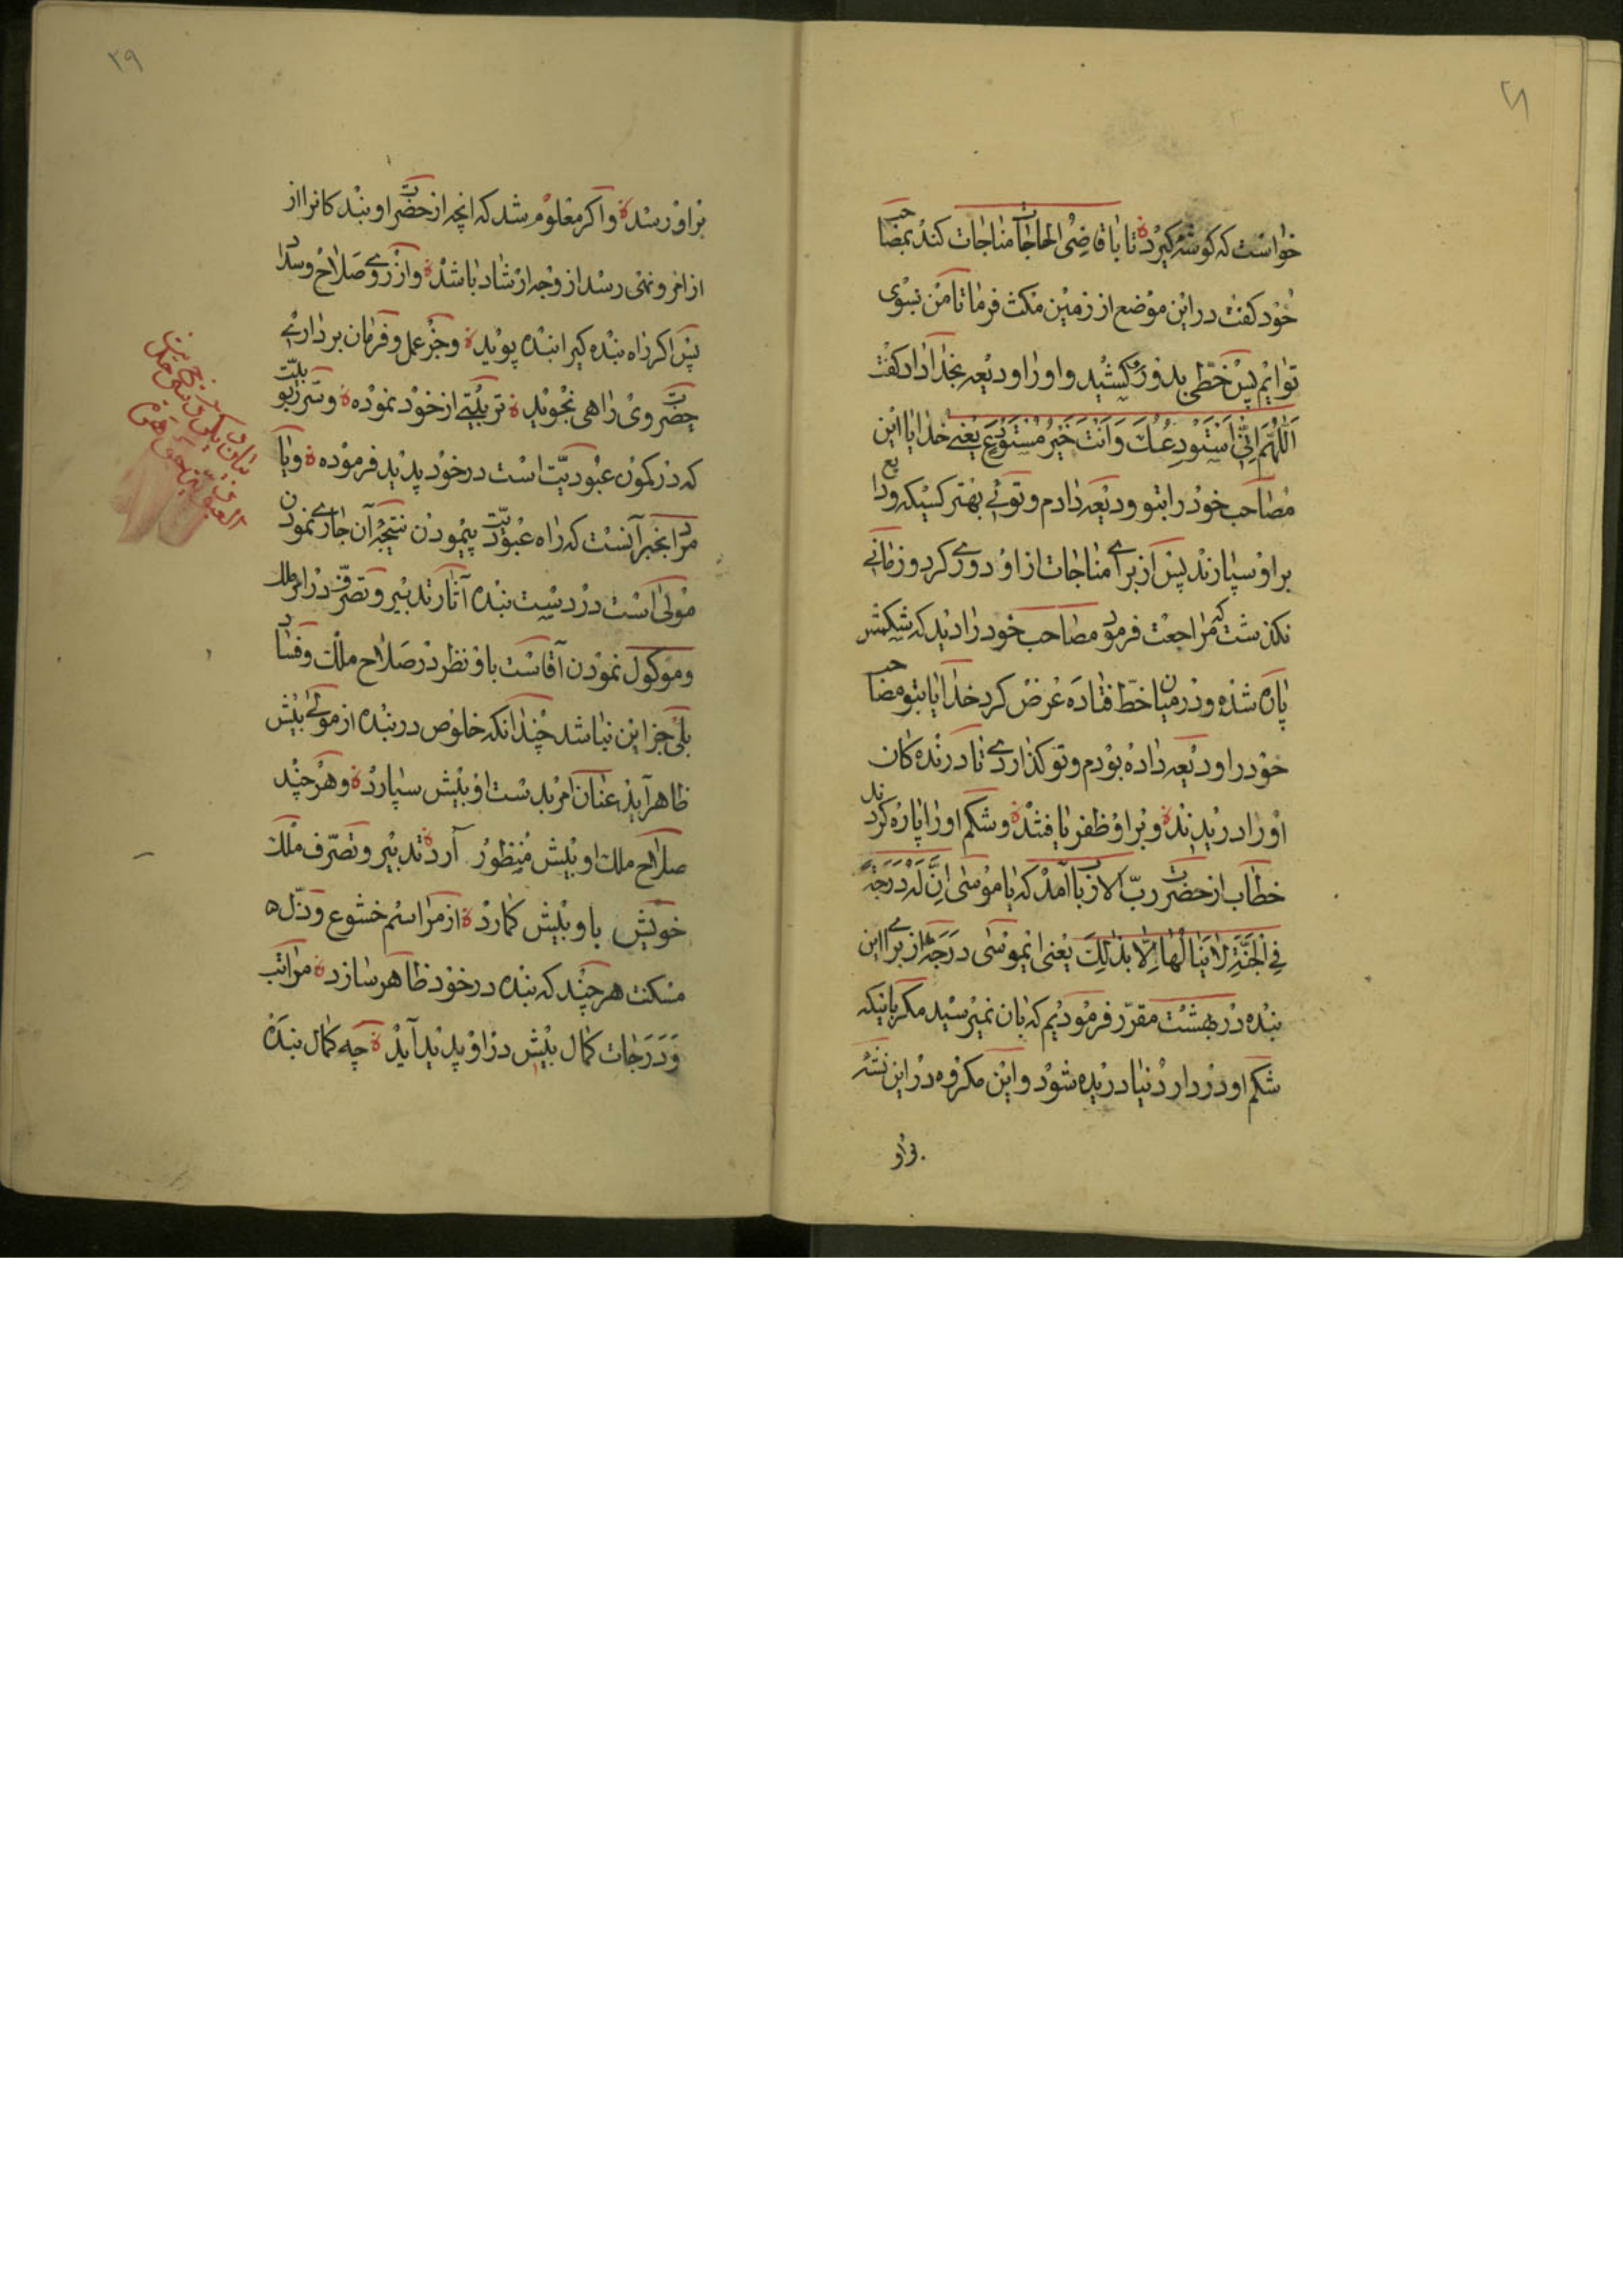 ۲۸
خواست که کوشه کیرد تا با قاضی الحاجات مناجات کند بمصاحب
خود کفت در این موضع از زمین مکث فرما تا من بسوی
تو آیم پس خطی بدورش کشید و او را ودیعه بخدا داد کفت
اللهم انی استودعک و انت خیر مستودع یعنی خدایا این
مصاحب خود را بتو ودیعه دادم و توئی بهتر کسیکه ودایع
بر او سپارند پس از برای مناجات از او دوری کرد و زمانی
نکذشت که مراجعت فرمود مصاحب خود را دید که شکمش
پاره شده و در میان خط فتاده عرض کرد خدایا بتو مصاحب
خود را ودیعه داده بودم و تو کذاردی تا درنده کان
او را دریدند و بر او ظفر یافتند و شکم او را پاره کردند
خطاب از حضرت رب الارباب آمد که یا موسی ان له درجة
فی الجنة لا ینالها الا بذلک یعنی ایموسی درجه از برای این
بنده در بهشت مقرر فرمودیم که بان نمیرسید مکر باینکه
شکم او در دار دنیا دریده شود و این مکروه در این نشئه
بر او
۲۹
بر او رسد و اکر معلوم شد که انچه از حضرت او بندکانرا از
از امر و نهی رسد از وجه ارشاد باشد و از روی صلاح و سداد
پس اکر راه بنده کیرا بنده پوید و جز عمل و فرمان برداری
حضرت وی راهی نجوید تربیتی از خود نموده و سر ربوبیت
که در کمون عبودیت است در خود پدید فرموده و یا
مراد بخبر آنست که راه عبودیت پیمودن نتیجه آن جاری نمودن
مولی است در دست بنده آثار تدبیر و تصرف در امر ملک
و موکول نمودن آقاست باو نظر در صلاح ملک و فساد
بلی جز این نباشد چندانکه خلوص در بنده از مولی بیش
ظاهر آید عنان امر بدست او بیش سپارد و هر چند
صلاح ملک او بیش منظور آرد تدبیر و تصرف ملک
خویش باو بیش کمارد از مراسم خشوع و ذل ه
مسکنت هر چند که بنده در خود ظاهر سازد مراتب
و درجات کمال بیش در او پدید آید چه کمال بنده